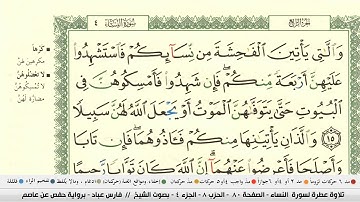 الجزء الرابع
سورة النساء
٤
وَالَّٰتِي يَأْتِينَ الْفَاحِشَةَ مِن نِّسَائِكُمْ فَاسْتَشْهِدُوا
عَلَيْهِنَّ أَرْبَعَةً مِّنكُمْ فَإِن شَهِدُوا فَأَمْسِكُوهُنَّ فِي
الْبُيُوتِ حَتَّىٰ يَتَوَفَّاهُنَّ الْمَوْتُ أَوْ يَجْعَلَ اللَّهُ لَهُنَّ سَبِيلًا
١٥ وَاللَّذَانِ يَأْتِيَانِهَا مِنكُمْ فَآذُوهُمَا فَإِن تَابَا
وَأَصْلَحَا فَأَعْرِضُوا عَنْهُمَا إِنَّ اللَّهَ كَانَ تَوَّابًا رَّحِيمًا
كرها
مكرهين لهن
لا تعضلوهن
لا تمسكوهن
مضارة لهن
تلاوة عطرة لسورة النساء - الصفحة ٨٠ - الحزب ٨ - الجزء ٤ - بصوت الشيخ // فارس عباد - برواية حفص عن عاصم